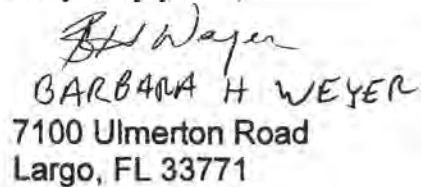 BH Weyer
BARBARA H WEYER
7100 Ulmerton Road
Largo, FL 33771